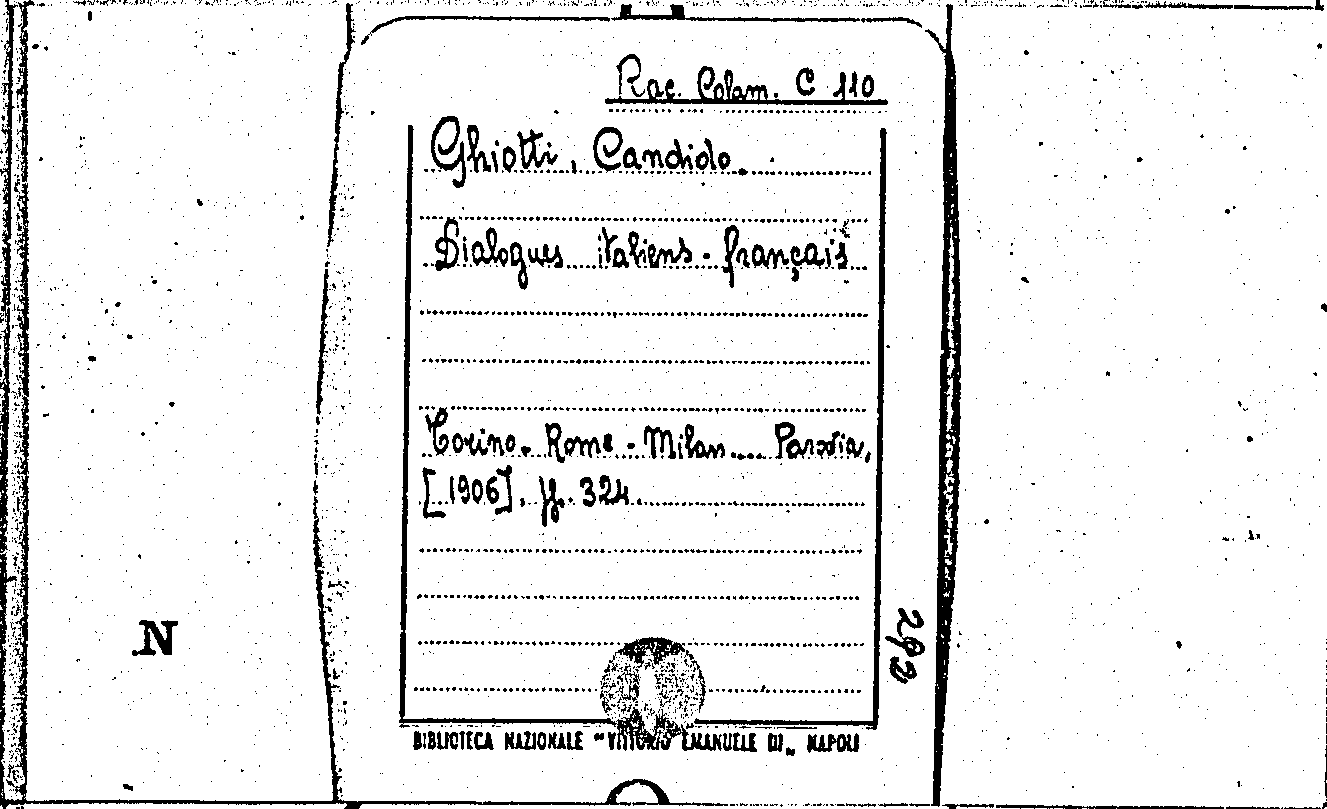 Rac. Colam. C 110
Ghiotti, Candido.
Dialogues italiens-français
Torino-Rome-Milan.... Paravia,
[1906], pp. 324.
N
BIBLIOTECA NAZIONALE "VITTORIO EMANUELE III„ NAPOLI